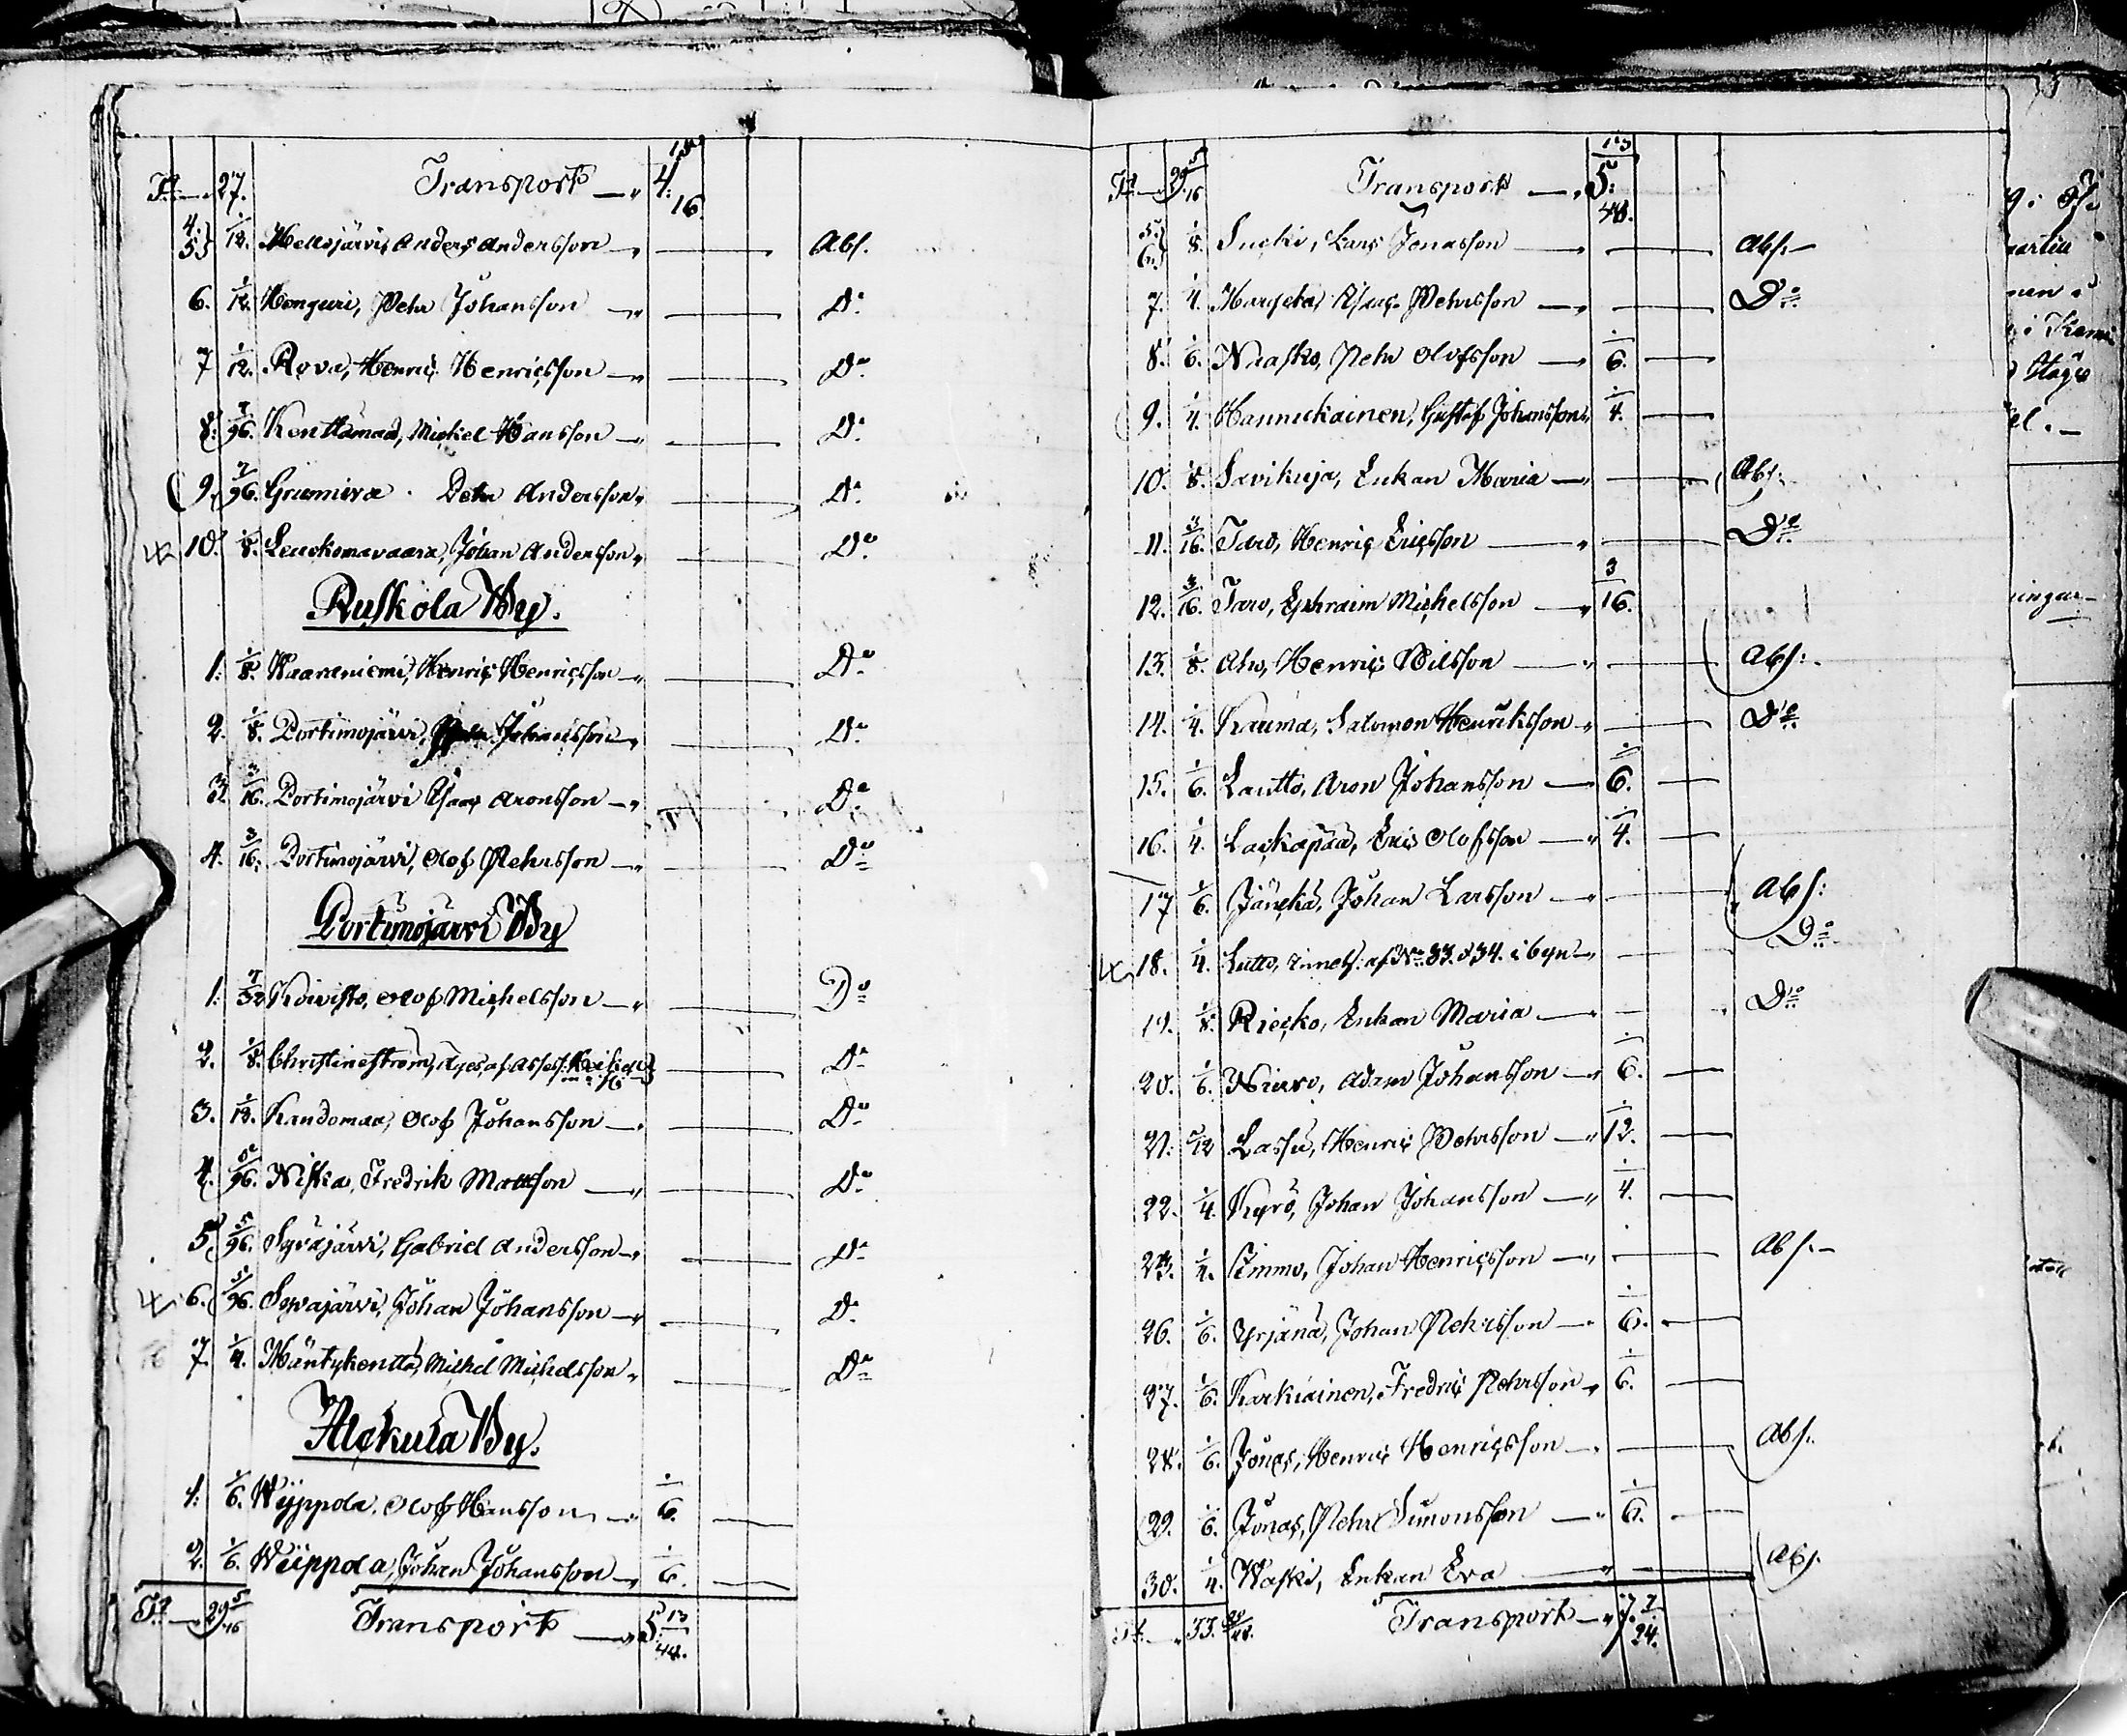 Tr. — 27. Transport — " 4. 15/16.
4. 5} 1/12. Mellajärvi, Anders Andersson — " Abs.
6. 1/12. Konguri, Pehr Johansson — " Do
7 1/12. Rova, Henric Henricsson — " Do
8. 7/96. Kenttämaa, Mickel Hansson — " Do
9. 7/96. Grumivra. Pehr Andersson " Do
10. 1/8. Leuvkomavaara, Johan Andersson " Do
Ruskola By.
1. 1/8. Waaraniemi, Henric Henricsson — " Do
2. 1/8. Portimojärvi, Johansson — " Do
3. 3/16. Portimojärvi Isaac Aronsson — " Do
4. 3/16. Portimojärvi, Olof Pehrsson — " Do
Portimojärvi By
1. 7/32 Koivisto, Olof Michelsson — " Do
2. 1/8. Christineström, äges af Assess: Do
3. 1/12. Kandomaa, Olof Johansson — " Do
4. 5/96. Niska, Fredrik Mattsson — " Do
5. 5/96. Syväjärvi, Gabriel Andersson — " Do
6. 5/96. Syvajärvi, Johan Johansson — " Do
7. 1/4. Mäntykenttä, Michel Michelsson " Do
Alckula By.
1. 1/6. Wyppola. Olof Hansson — " 1/6.
2. 1/6. Wiippola, Johan Johansson — " 1/6.
Tr. — 29 5/16 Transport — " 5. 13/48.
Tr. — 29 5/16 Transport — " 5. 13/48.
5. 6.} 1/8. Sucki, Lars Jonasson — " Abs. —
7. 1/4. Isaac Pehrsson — " Do
8. 1/6. Naasko, Pehr Olofsson — " 1/6.
9. 1/4. Hannukainen, Gustaf Johansson " 1/4.
10. 1/8. Savikuja, Enkan Maria — " Abs.
11. 3/16. Taro, Henric Ericsson — " Do
12. 3/16. Taro, Ephraim Michelsson — " 3/16.
13. 1/8. Aho, Henric Nilsson — " Abs:
14. 1/4. Rauma, Salomon Henriksson " Do
15. 1/6. Lautto, Aron Johansson — " 1/6.
16. 1/4. Lackapää, Eric Olofsson — " 1/4.
17 1/6. Jäncka, Johan Larsson — " Abs:
18. 1/4. Lutto, innehs. af No 33. & 34. i byn — " Do
19. 1/8. Riecko, Enkan Maria — " Do
20. 1/6. Niuro, Adam Johansson — " 1/6.
21. 1/12 Lassu, Henric Pehrsson — " 1/12.
22. 1/4. Kyrö, Johan Johansson — " 1/4.
23. 1/4. Simmo, Johan Henricsson — " Abs. —
26. 1/6. Yrjänä, Johan Pehrsson — " 1/6.
27. 1/6. Karkiainen, Fredric Pehrsson " 1/6.
28. 1/6. Jonas, Henric Henricsson — " Abs.
29. 1/6. Jonas, Pehr Simonsson — " 1/6.
30. 1/4. Waski, Enkan Eva — " Abs.
Tr. — " 33. Transport — " 7. 7/24.